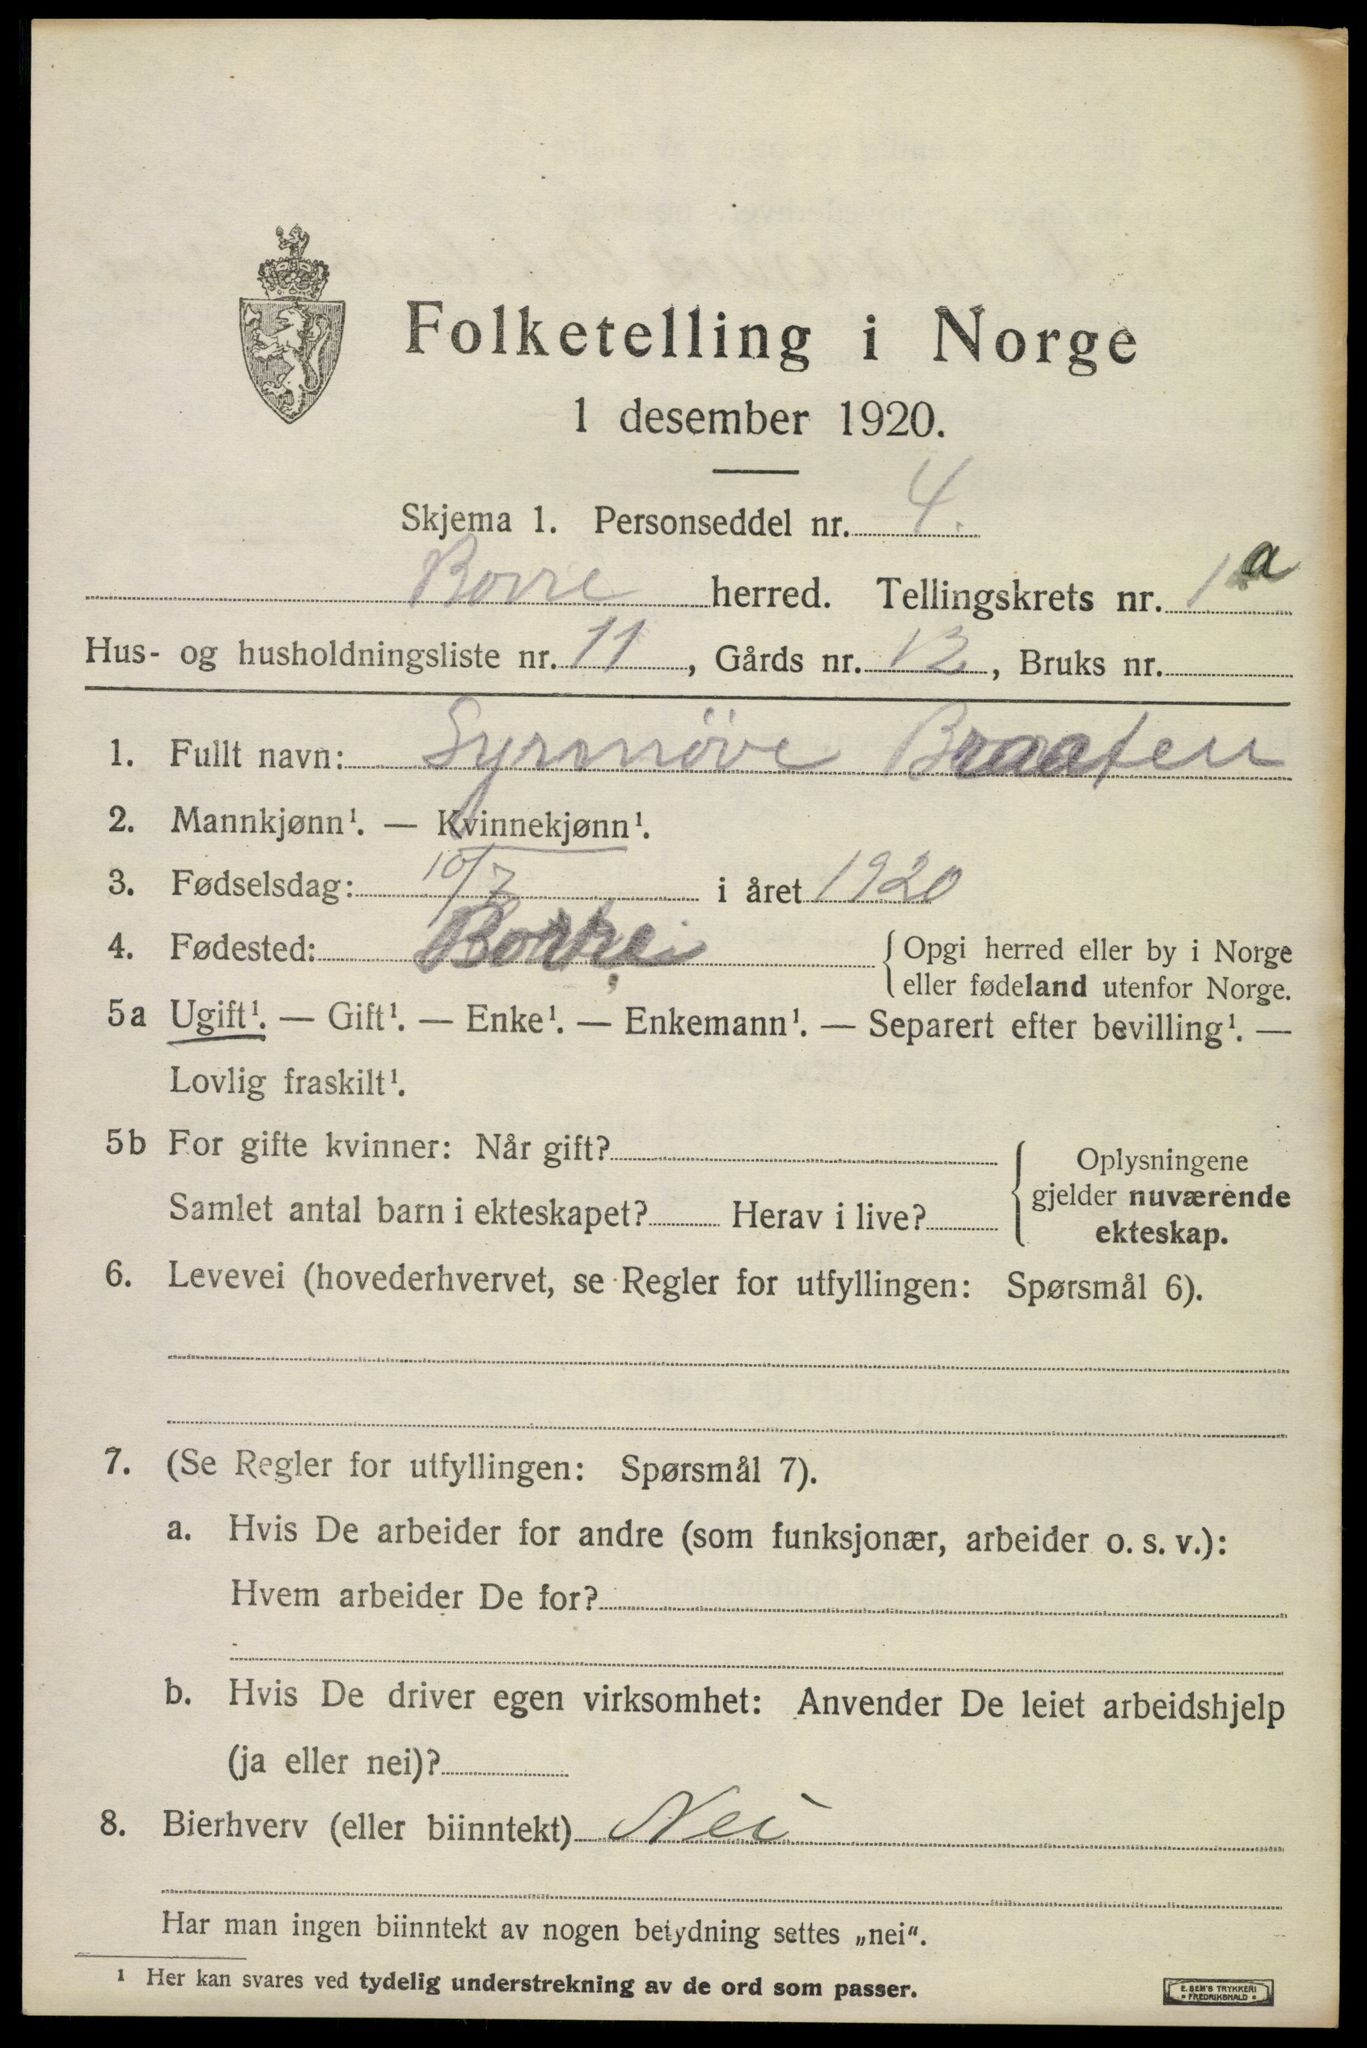 Folketelling i Norge
1 desember 1920.
Skjema 1. Personseddel nr. 4.
Borre herred. Tellingskrets nr. 1 a
Hus- og husholdningsliste nr. 11, Gårds nr. 13, Bruks nr.
1. Fullt navn: Synnøve Braaten
2. Mannkjønn¹. — Kvinnekjønn¹.
3. Fødselsdag: 10/7 i året 1920
4. Fødested: Borre { Opgi herred eller by i Norge
eller fødeland utenfor Norge.
5a Ugift¹. — Gift¹. — Enke¹. — Enkemann¹. — Separert efter bevilling¹. —
Lovlig fraskilt¹.
5b For gifte kvinner: Når gift?
Samlet antal barn i ekteskapet? Herav i live?
{ Oplysningene
gjelder nuværende
ekteskap.
6. Levevei (hovederhvervet, se Regler for utfyllingen: Spørsmål 6).
7. (Se Regler for utfyllingen: Spørsmål 7).
a. Hvis De arbeider for andre (som funksjonær, arbeider o. s. v.):
Hvem arbeider De for?
b. Hvis De driver egen virksomhet: Anvender De leiet arbeidshjelp
(ja eller nei)?
8. Bierhverv (eller biinntekt) Nei
Har man ingen biinntekt av nogen betydning settes „nei“.
¹ Her kan svares ved tydelig understrekning av de ord som passer.
E. SEM'S TRYKKERI
• FREDRIKSHALD •